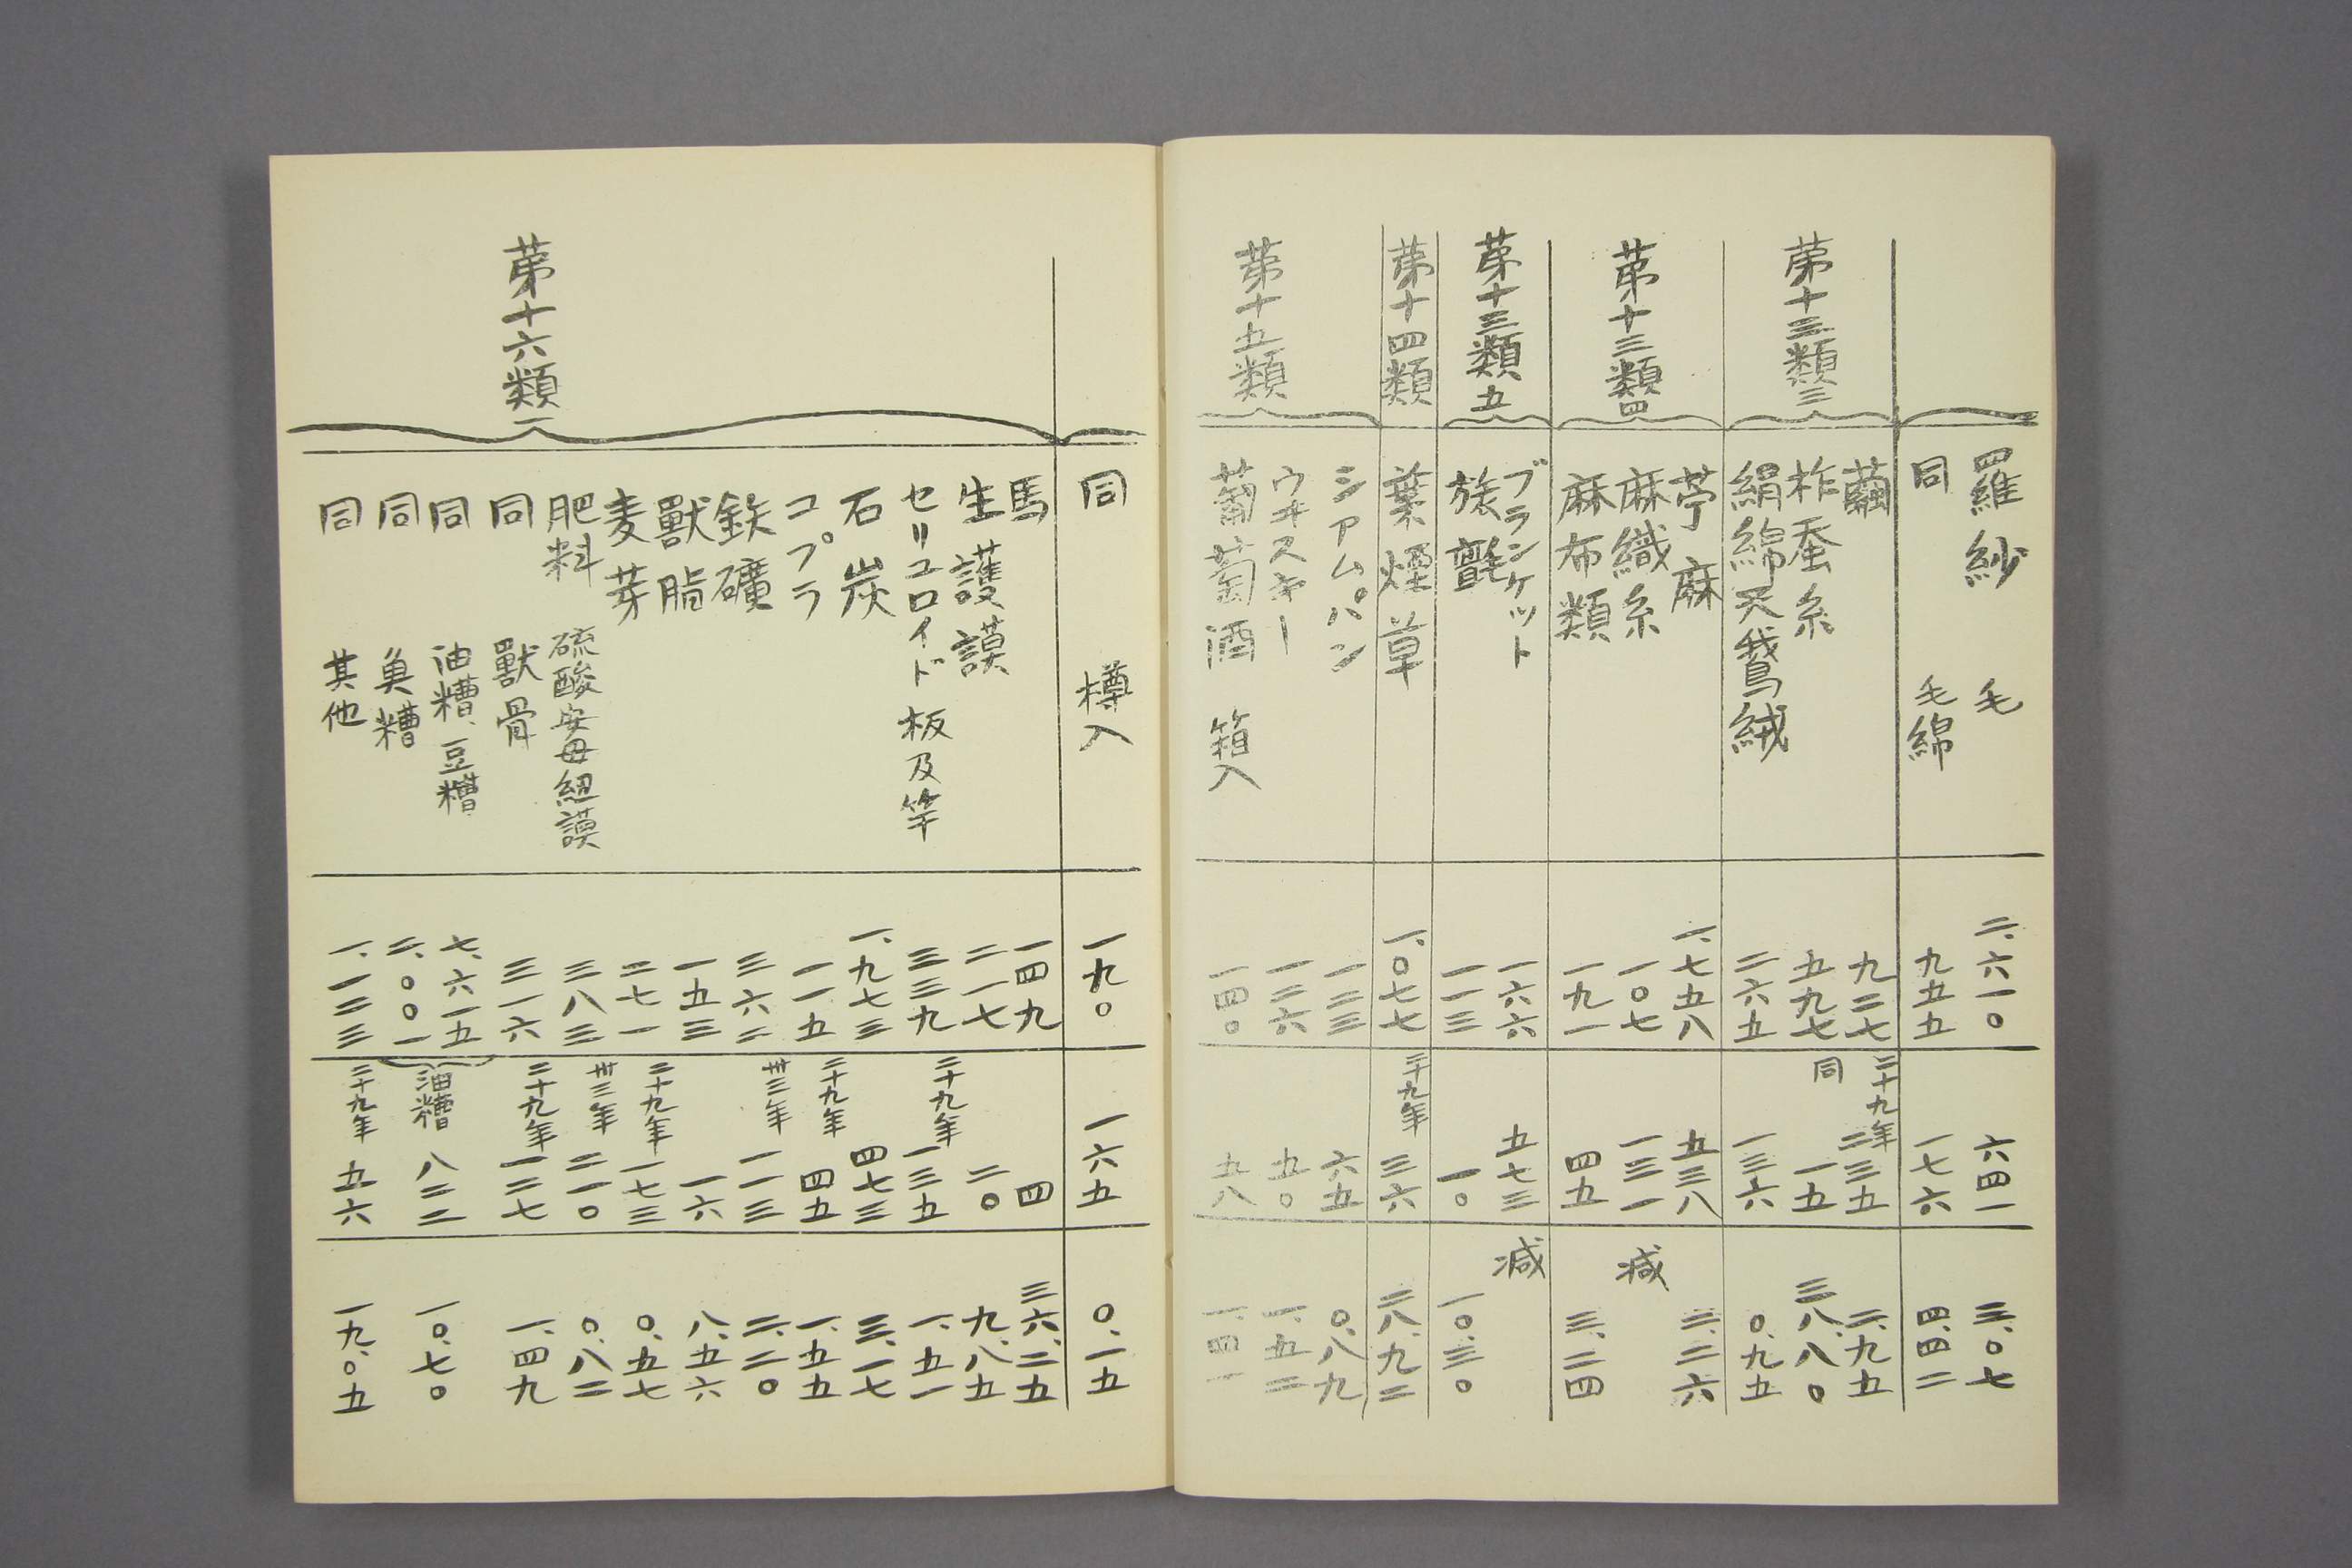 羅紗　毛　二、六一〇　六四一　三、〇七
同　毛綿　九五五　一七六　四、四二
第十三類三
繭　九二七　二十九年　二三五　二、九五
柞蚕糸　五九七　同　一五　三八、八〇
絹綿天鵞絨　二六五　一三六　〇、九五
第十三類四
苧麻　一、七五八　五三八　二、二六
麻織糸　一〇七　一三一　減
麻布類　一九一　四五　三、二四
第十三類五
ブランケット　一六六　五七三　減
旅氈　一一三　一〇　一〇、三〇
第十四類
葉煙草　一、〇七七　二十九年　三六　二八、九二
第十五類
シアムパン　一二三　六五　〇、八九
ウヰスキー　一二六　五〇　一、五二
葡萄酒　箱入　一四〇　五八　一、四一
同　樽入　一九〇　一六五　〇、一五
第十六類一
馬　一四九　四　三六、二五
生護謨　二一七　二〇　九、八五
セリュロイド板及竿　三三九　二十九年　一三五　一、五一
石炭　一、九七三　四七三　三、一七
コプラ　一一五　二十九年　四五　一、五五
鉄礦　三六二　卅三年　一一三　二、二〇
獣脂　一五三　一六　八、五六
麦芽　二七一　二十九年　一七三　〇、五七
肥料　硫酸安母紐謨　三八三　卅三年　二一〇　〇、八二
同　獣骨　三一六　二十九年　一二七　一、四九
同　油糟、豆糟　七、六一五
同　魚糟　二、〇〇一　油糟　八二二　一〇、七〇
同　其他　一、一二三　二十九年　五六　一九、〇五